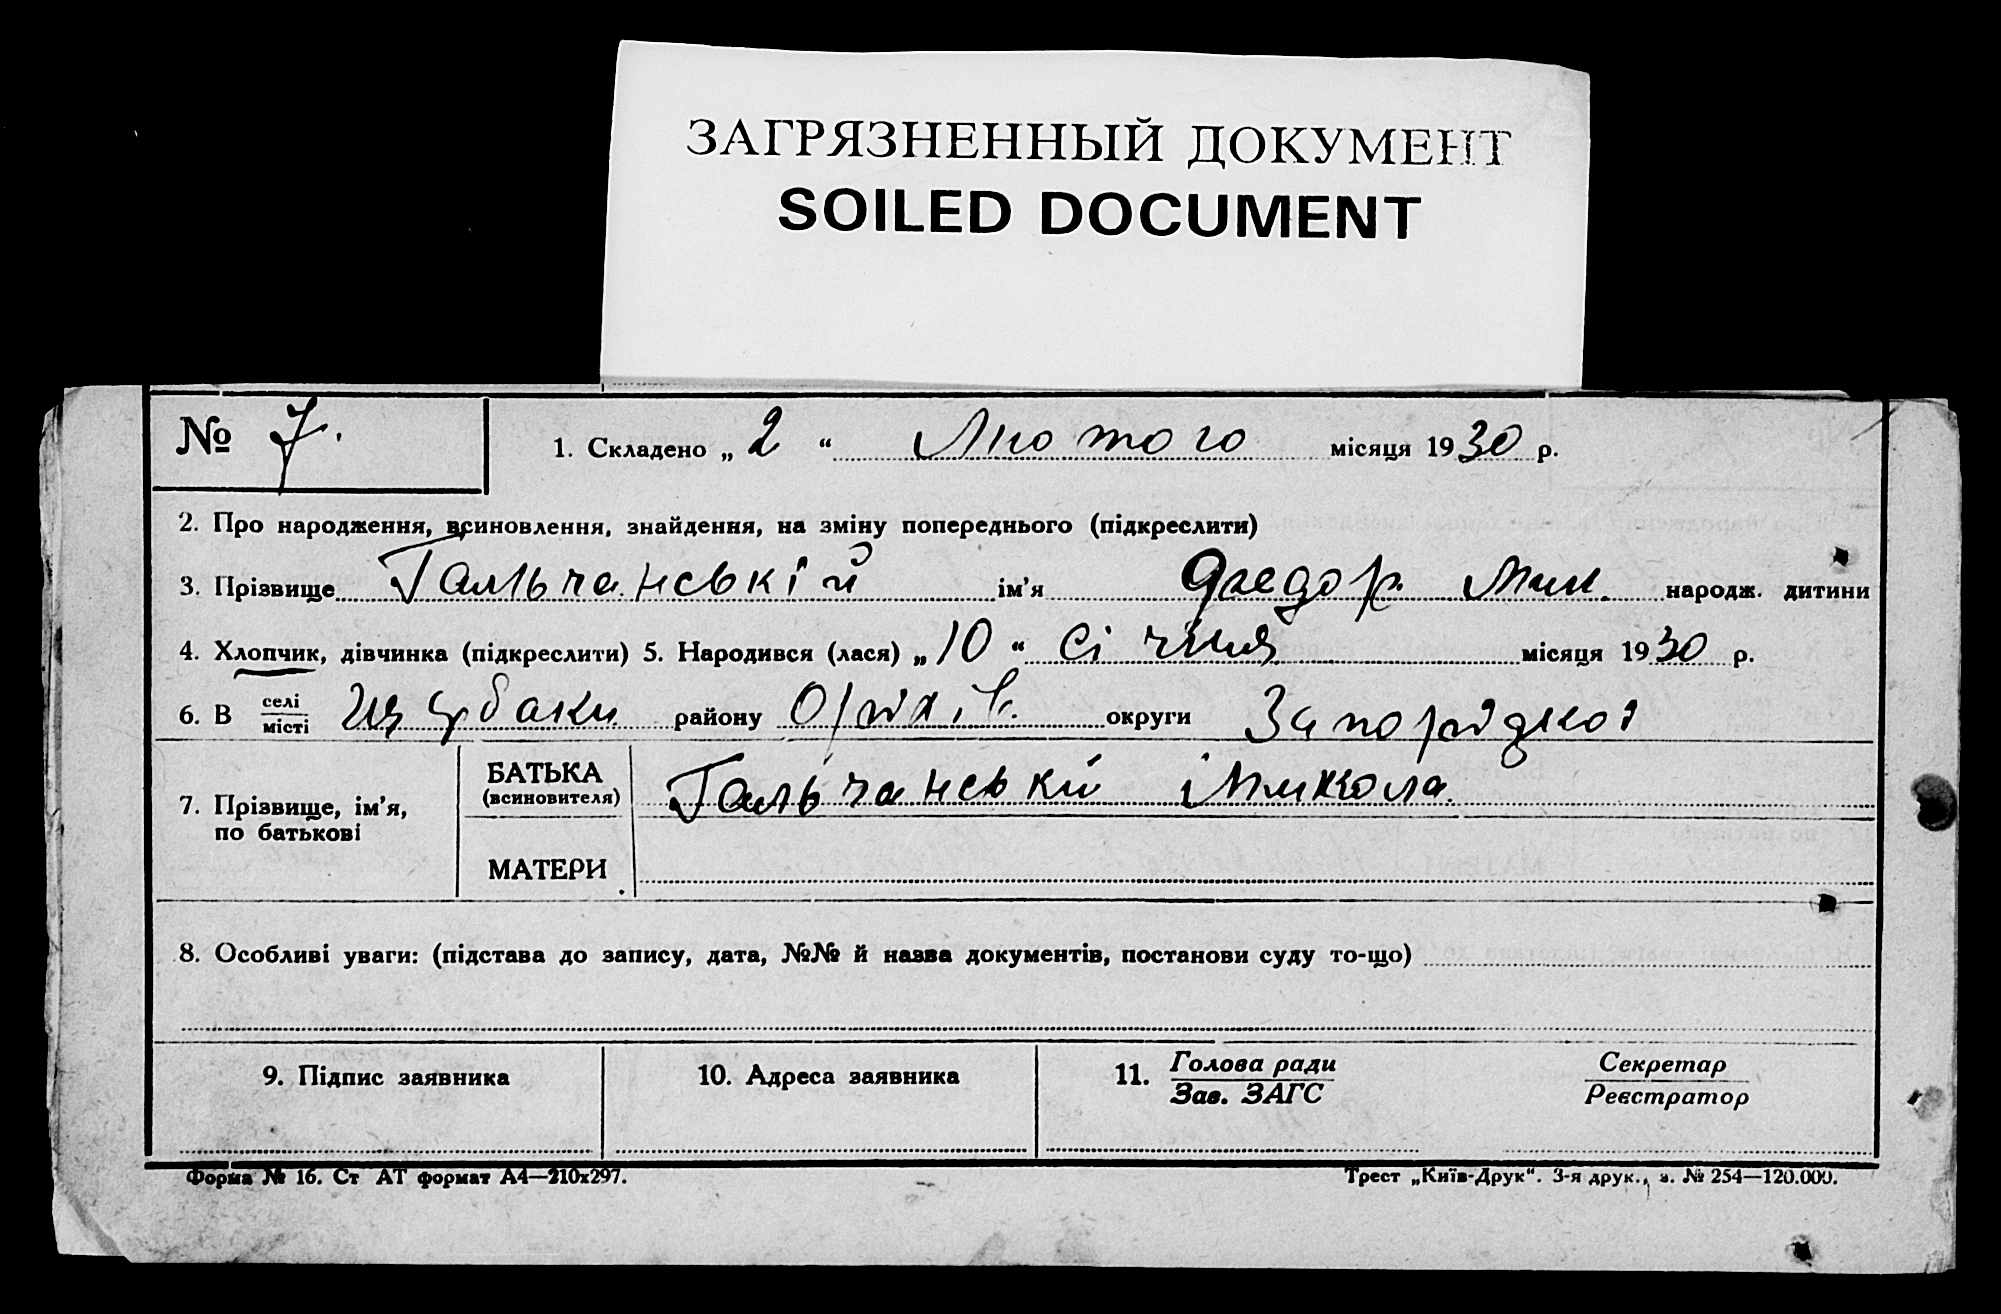 ЗАГРЯЗНЕННЫЙ ДОКУМЕНТ
SOILED DOCUMENT
№ 7.
1. Складено „ 2 “ Лютого місяця 1930 р.
2. Про народження, всиновлення, знайдення, на зміну попереднього (підкреслити)
3. Прізвище Гальчанський ім’я Федор Мик. народж. дитини
4. Хлопчик, дівчинка (підкреслити) 5. Народився (лася) „ 10 “ Січня місяця 1930 р.
6. В селі/місті Щербаки району Оріхів. округи Запорідкоі
7. Прізвище, ім’я, по батькові
БАТЬКА (всиновителя) Гальчанський Микола
МАТЕРИ
8. Особливі уваги: (підстава до запису, дата, №№ й назва документів, постанови суду то-що)
9. Підпис заявника 10. Адреса заявника 11. Голова ради Секретар
Зав. ЗАГС Реєстратор
Форма № 16. Ст АТ формат А4—210х297. Трест „Київ-Друк“. 3-я друк., з. № 254—120.000.